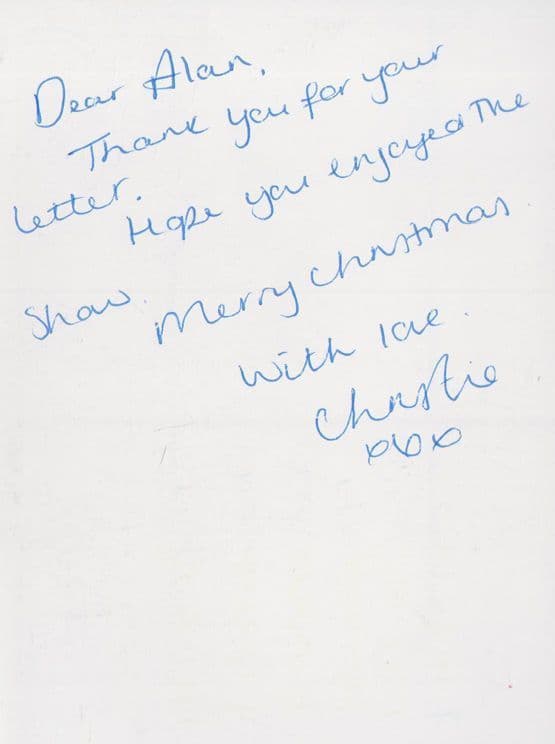 Dear Alan,
Thank you for your
letter.
Hope you enjoyed The
Show.
Merry Christmas.
With love.
Christie
xxx